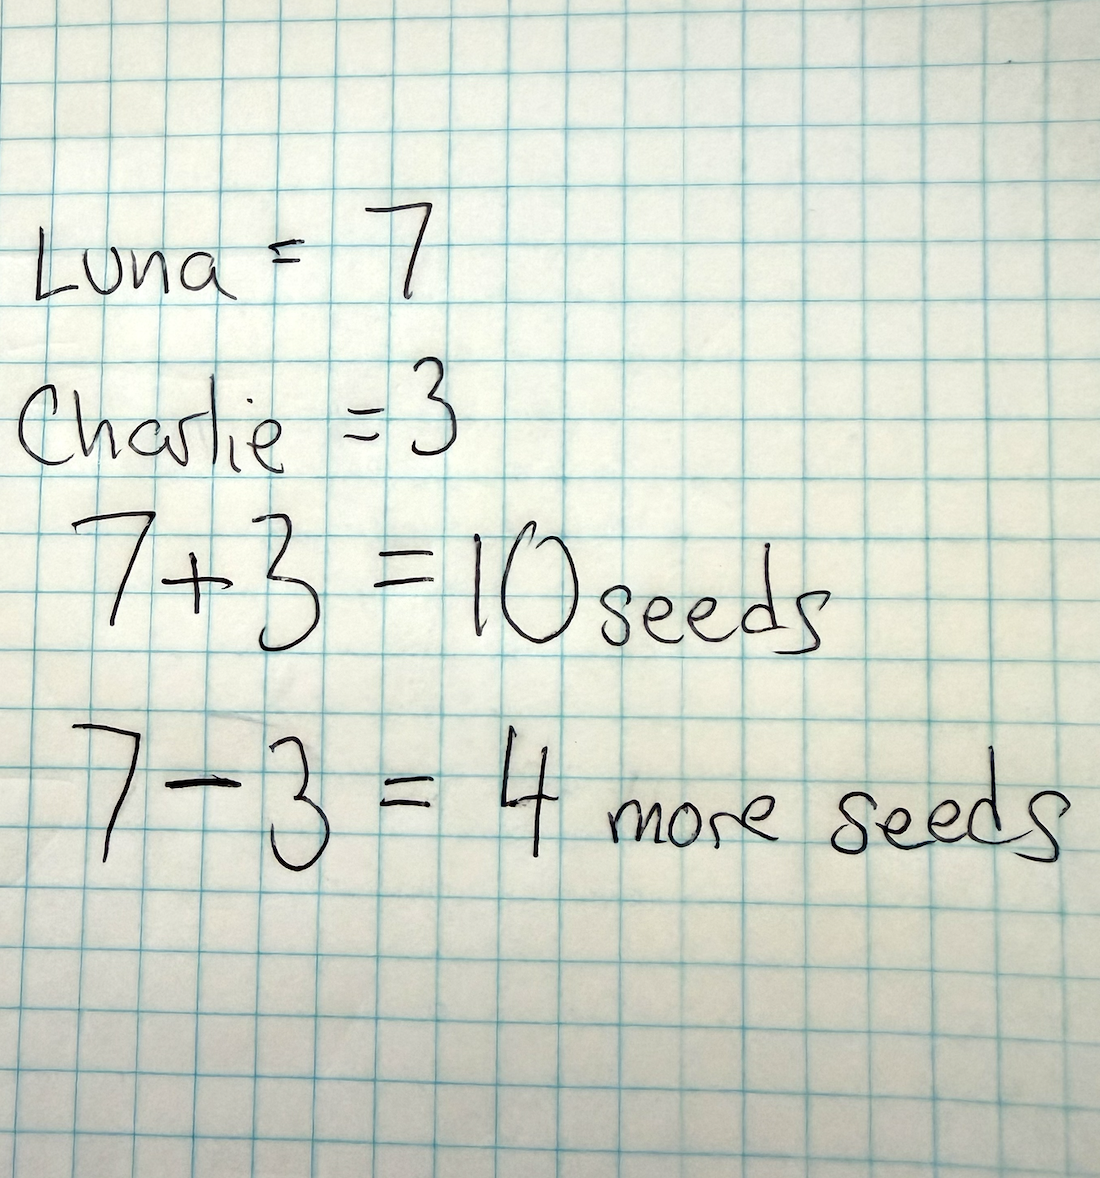 Luna = 7
Charlie = 3
7+3 = 10 seeds
7-3 = 4 more seeds